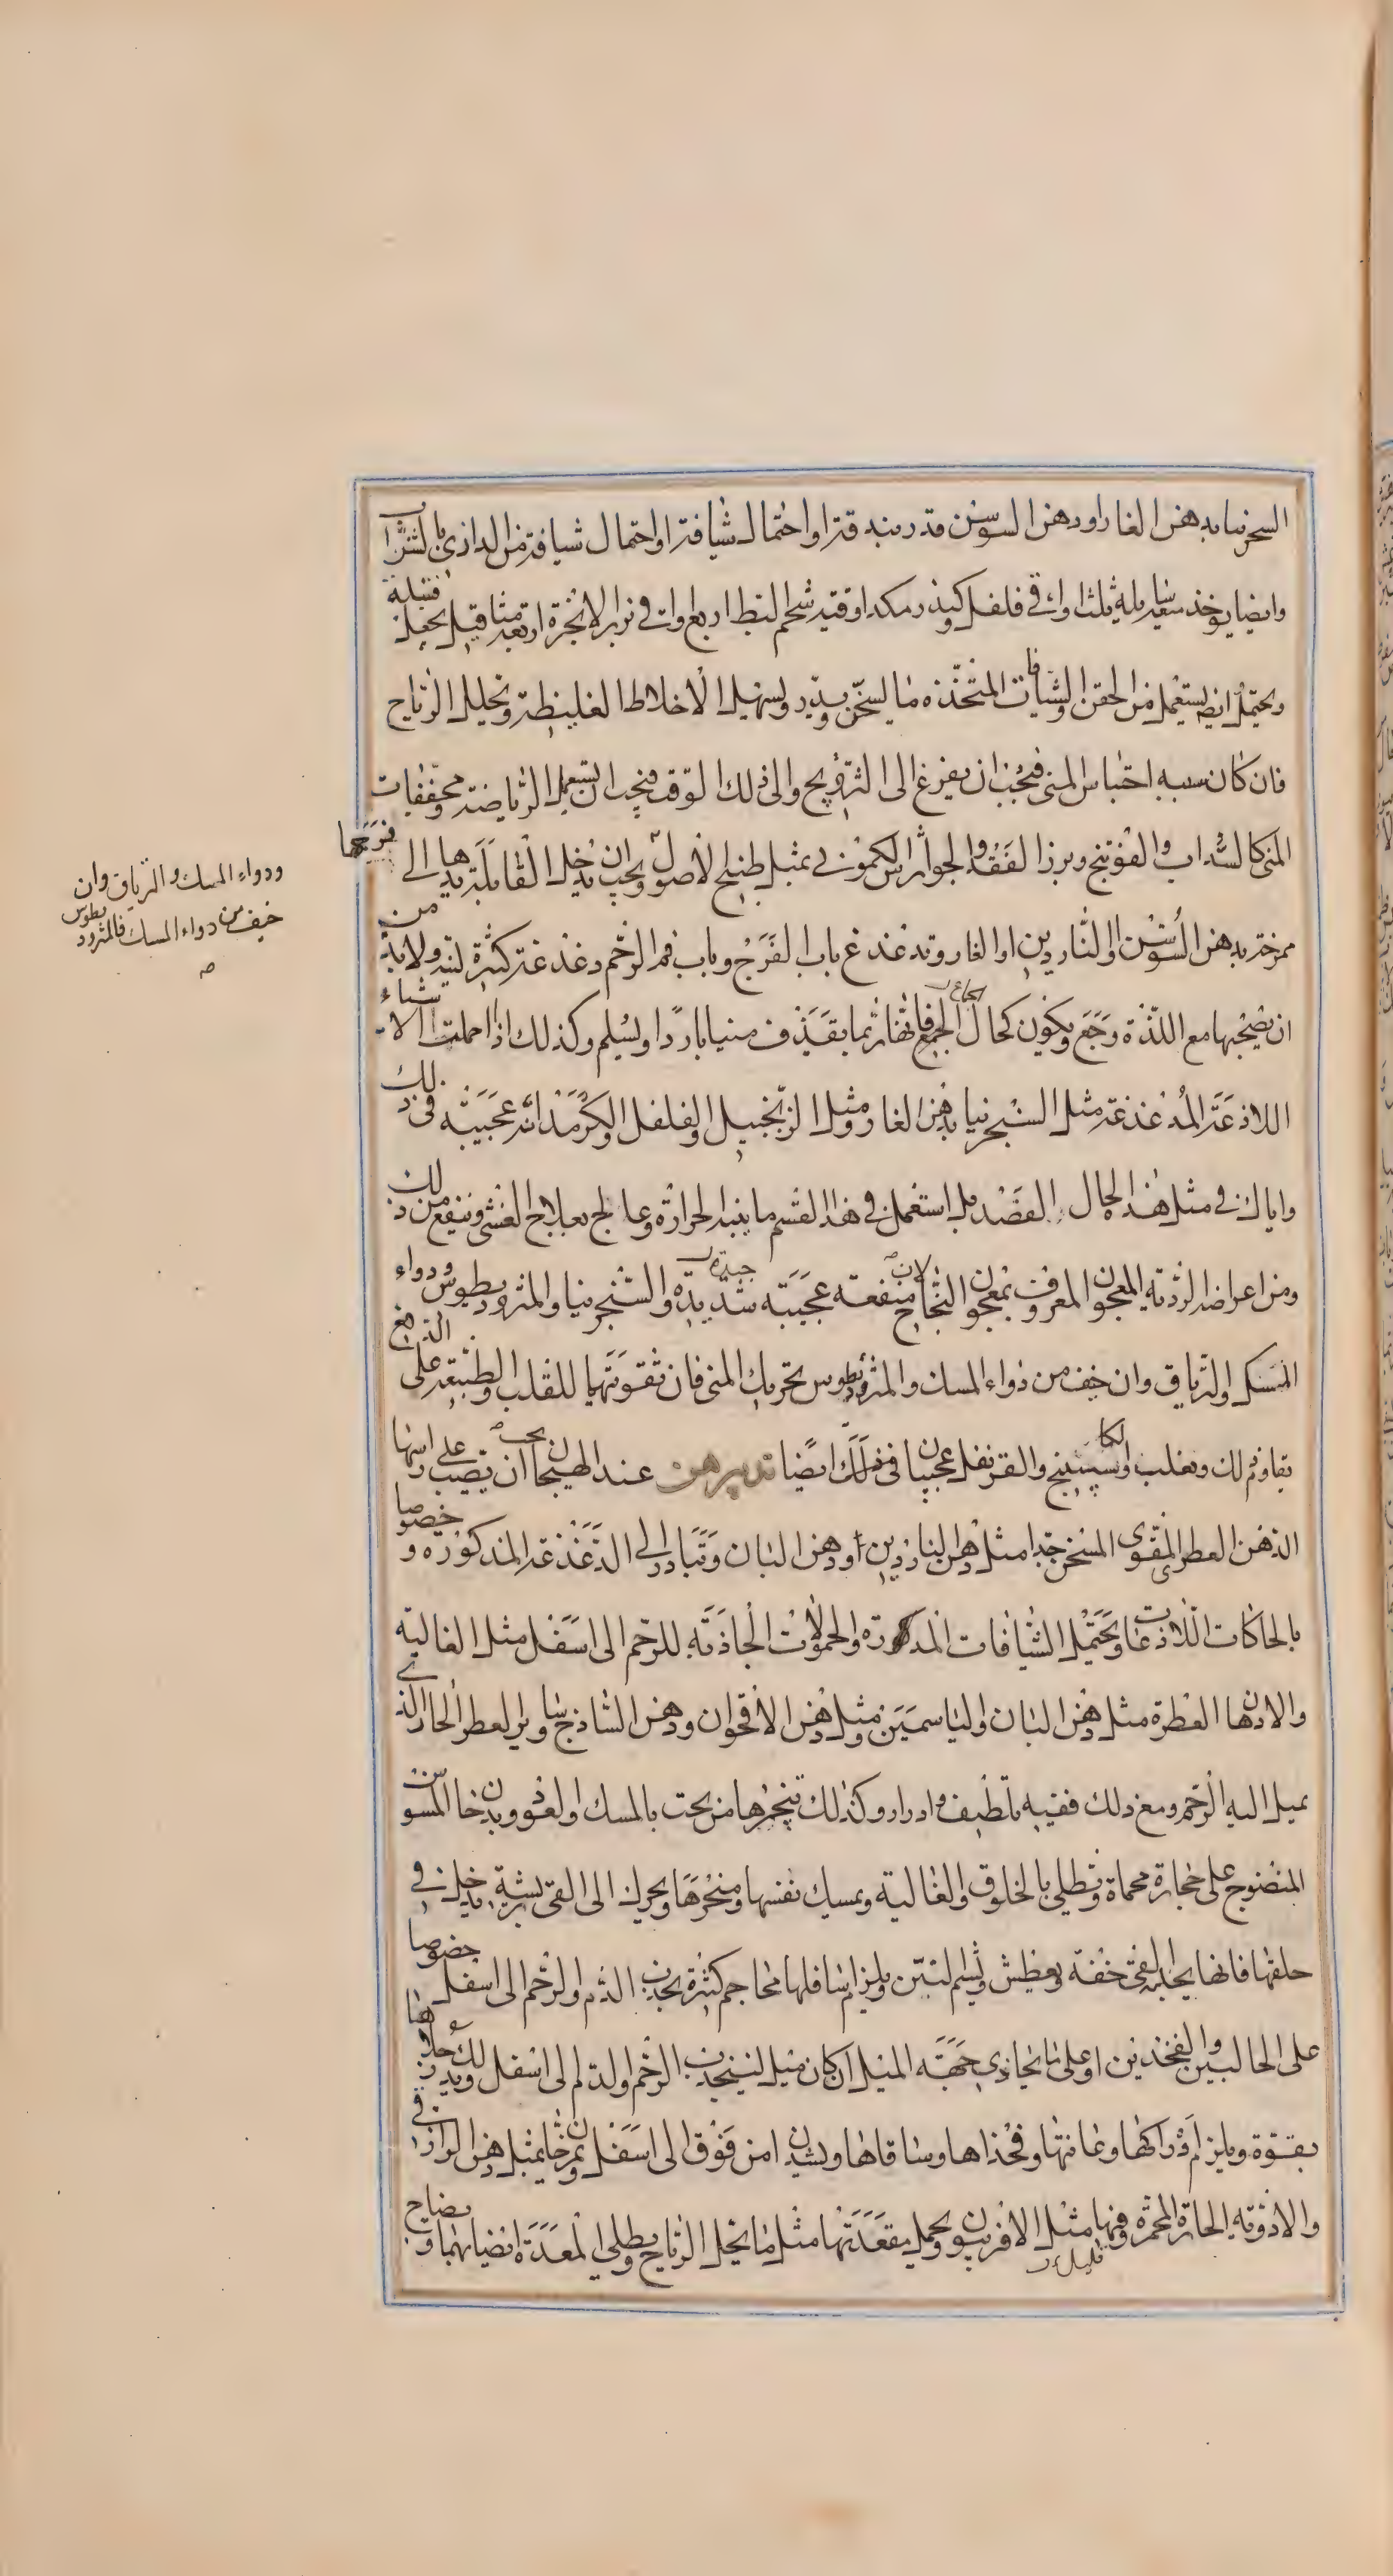 السجزنيا بدهن الغار او دهن السوسن قدر بندقة او احتمال شيافة او احتمال شيافة من الدازى بالشراب
وايضا يوخذ ميعة سايلة ثلث اواقى فلفل وكندر مكد اوقية شحم البط اربع اواقى بزر الانجرة اربعة مثاقيل يجعل فتيلة
ويحتمل ايضا يستعمل من الحقن والشيافات المتخذة ما يسخن ويدر ويسهل الاخلاط الغليظة وتحليل الرياح
فان كان سببه احتباس المنى فيجب ان يفزع الى التزويج والى ذلك الوقت فيجب ان يستعمل الرياضة ومجففات
المنى كالسذاب والفوتنج وبرز الفقد والجوارش الكمونى بمثل طبيخ الاصول ويجب ان يدخل القابلة يدها الى فرجها
ممرخة بدهن السوسن او الناردين او الغار وتدغدغ باب الفرج وباب فم الرحم دغدغة كثيرة لينة ولا بد من
ان يصحبها مع اللذة وجع ويكون كحال الجماع فانها ربما يقذف منيا باردا ويسلم وكذلك اذا احملت الاشياء
اللاذعة المدغدغة مثل السجزنيا بدهن الغار ومثل الزنجبيل والفلفل والكرمدانة عجيبة فى ذلك
واياك فى مثل هذا الحال الفصد بل استعمل فى هذا القسم ما ينبه الحرارة وعالج بعلاج الغشى وينفع من ذلك
ومن اعراضه الردية المعجون المعروف بمعجون النجاح لان منفعته عجيبة شديدة جيدة والسنجرنيا والمثروديطوس ودواء
المسك والترياق وان خيف من دواء المسك والمثروديطوس تحريك المنى فان تقويتهما للقلب والطبيعة على الدفع
يقاوم ذلك ويغلب ولكا سكبينج والقرنفل عجيبان فى ذلك ايضا تدبيرهن عند الهيجان يجب ان يصب على راسها
الدهن العطر المقوى المسخن جدا مثل دهن الناردين او دهن البان وتبادر الى الدغدغة المذكورة وخصوصا
بالحاكات اللاذعات ويحتمل الشيافات المذكورة والحمولات الجاذبة للرحم الى اسفل مثل الغالية
والادهان العطرة مثل دهن البان والياسمين ومثل دهن الاقحوان ودهن الشاذج وساير العطر الحار الذى
يميل اليه الرحم ومع ذلك ففيه تلطيف وادرار وكذلك تبخرها من تحت بالمسك والعود وبدخان المسوس
المنضوج على حجارة محماة وتطلى بالخلوق والغالية ويمسك نفسها ومنخرها ويحرك الى القى بريشة يدخل فى
حلقها فانها يجد بالقى خفة وبعطش ويشم لتبين ويلزم اسافلها محاجم كثيرة يجذب الدم والرحم الى اسفل خصوصا
على الحالبين والفخذين او على ما يحاذى جهة الميل ان كان ميل لينجذب الرحم والدم الى اسفل ويدلك رجلاها
بقوة ويلزم اوراكها وعانتها وفخذاها وساقاها ويشدان من فوق الى اسفل ويمرخان بمثل دهن الرازقى
والادوية الحارة المحمرة وفيها مثل الافربيون قليل ويحمل بمقعدتها مثل ما يحل الرياح ويطلى المعدة ايضا بها وبضاح
ودواء المسك والترياق وان
خيف من دواء المسك فالمثروديطوس
صح